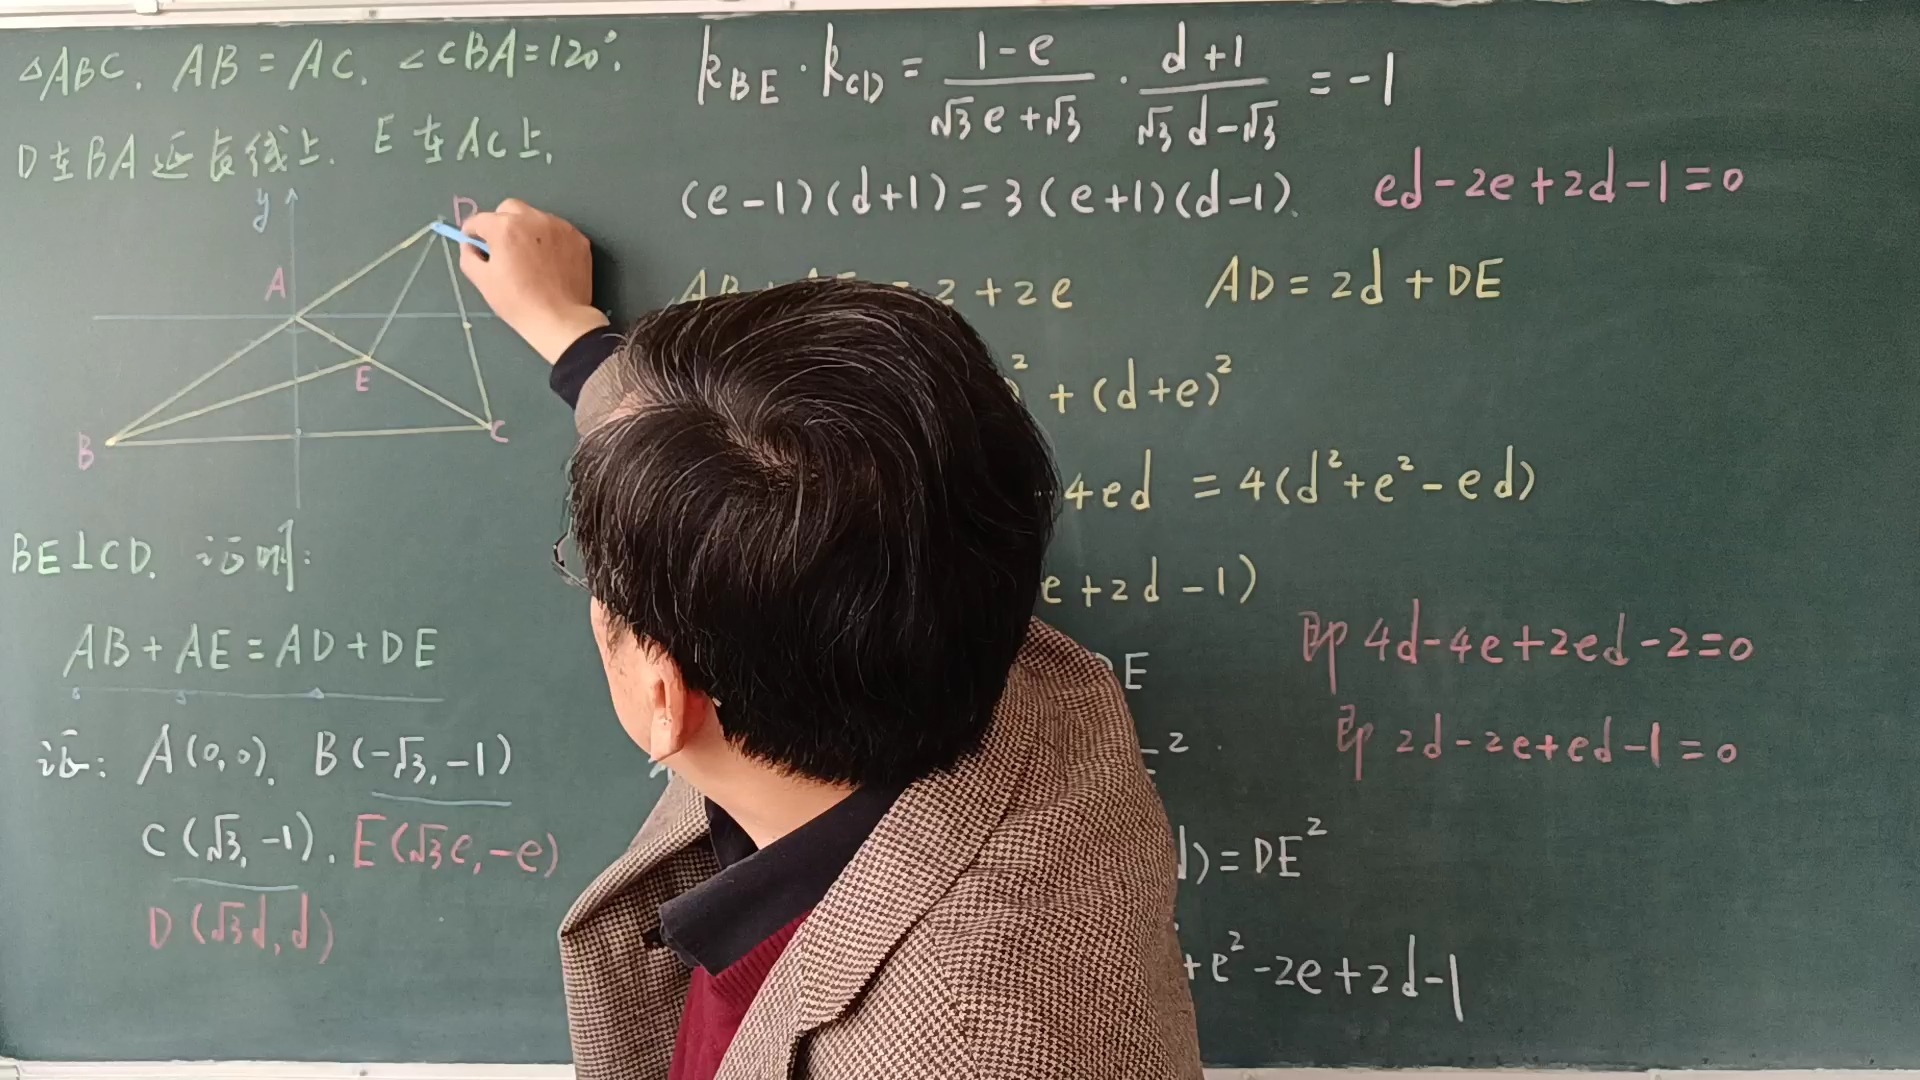 △ABC. AB=AC. ∠CBA=120°.
D在BA延长线上. E在AC上.
y
D
A
E
B
C
BE⊥CD. 证明:
AB+AE=AD+DE
证: A(0,0). B(-√3,-1)
C(√3,-1). E(√3e,-e)
D(√3d,d)
k_BE·k_CD = (1-e)/(√3e+√3) · (d+1)/(√3d-√3) = -1
(e-1)(d+1)=3(e+1)(d-1). ed-2e+2d-1=0
2+2e AD=2d+DE
² + (d+e)²
4ed = 4(d²+e²-ed)
e+2d-1)
即 4d-4e+2ed-2=0
E
即 2d-2e+ed-1=0
²
)=DE²
+e²-2e+2d-1